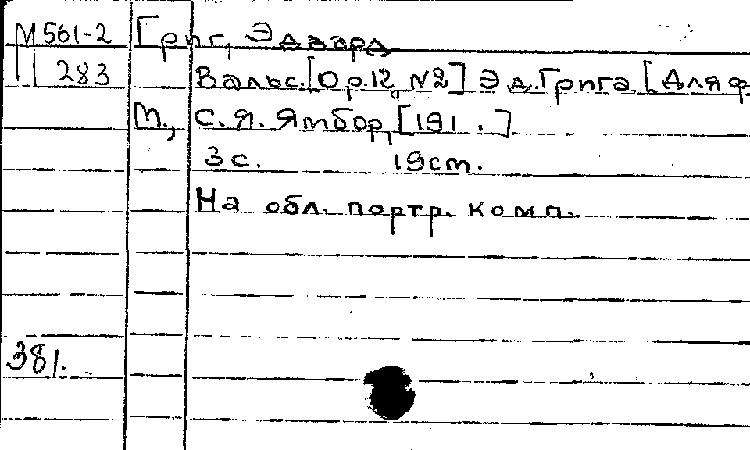 М 561-2 Григ, Эдвард
283 Вальс. [Op.12, №2] Эд. Грига [Для ф.
М., С. Я. Ямбор, [191 . ]
3 с. 19 ст.
На обл. портр. комп.
381.